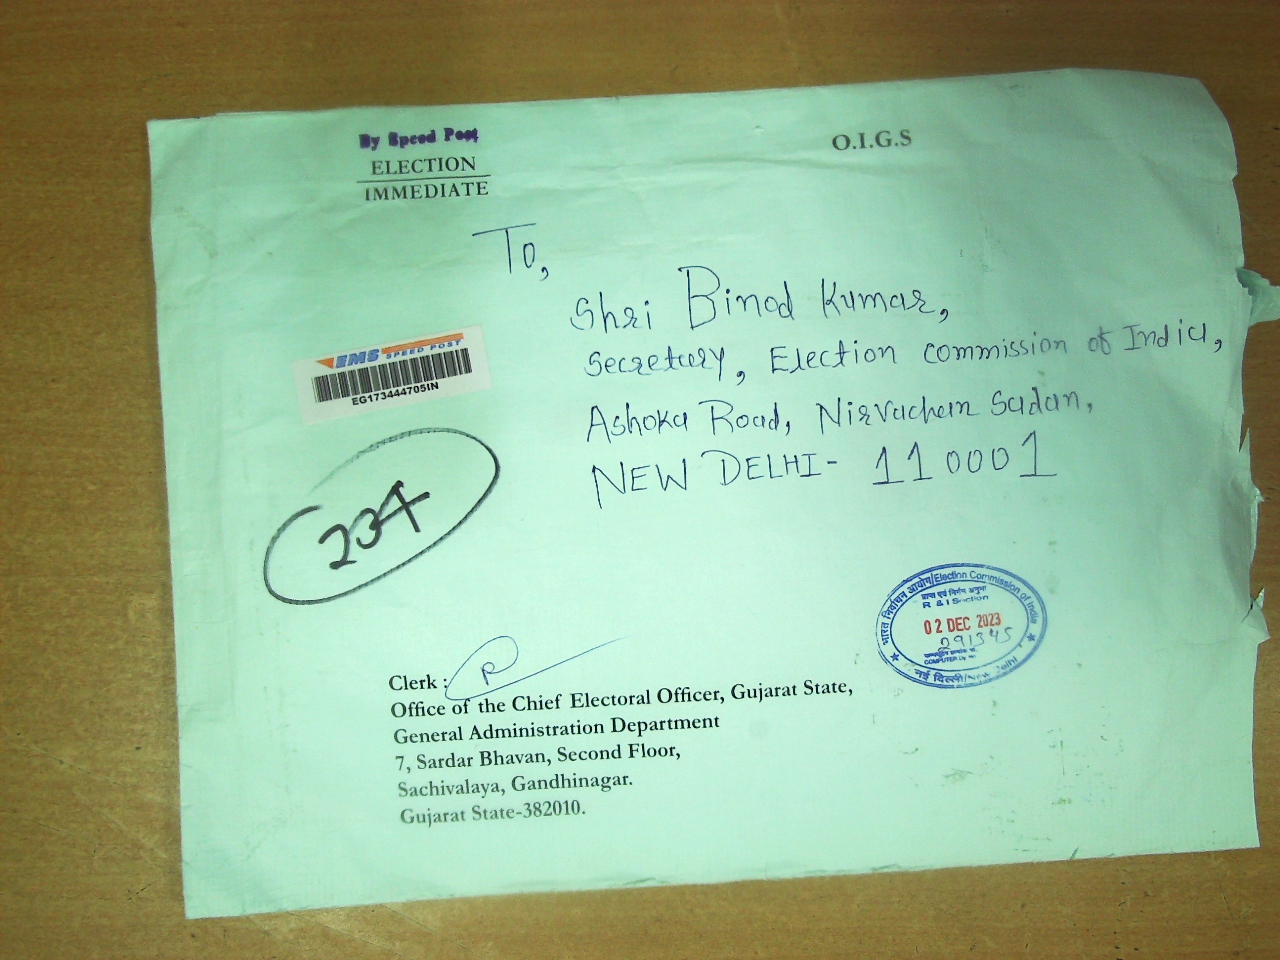 By Speed Post
ELECTION
IMMEDIATE
O.I.G.S
To,
Shri Binod Kumar,
Secretary, Election Commission of India,
Ashoka Road, Nirvachan Sadan,
NEW DELHI- 110001
EMS SPEED POST
EG173444705IN
234
भारत निर्वाचन आयोग/Election Commission of India
प्राप्त एवं निर्गम अनुभाग
R & I Section
02 DEC 2023
291345
COMPUTER
नई दिल्ली/New Delhi
Clerk :
Office of the Chief Electoral Officer, Gujarat State,
General Administration Department
7, Sardar Bhavan, Second Floor,
Sachivalaya, Gandhinagar.
Gujarat State-382010.